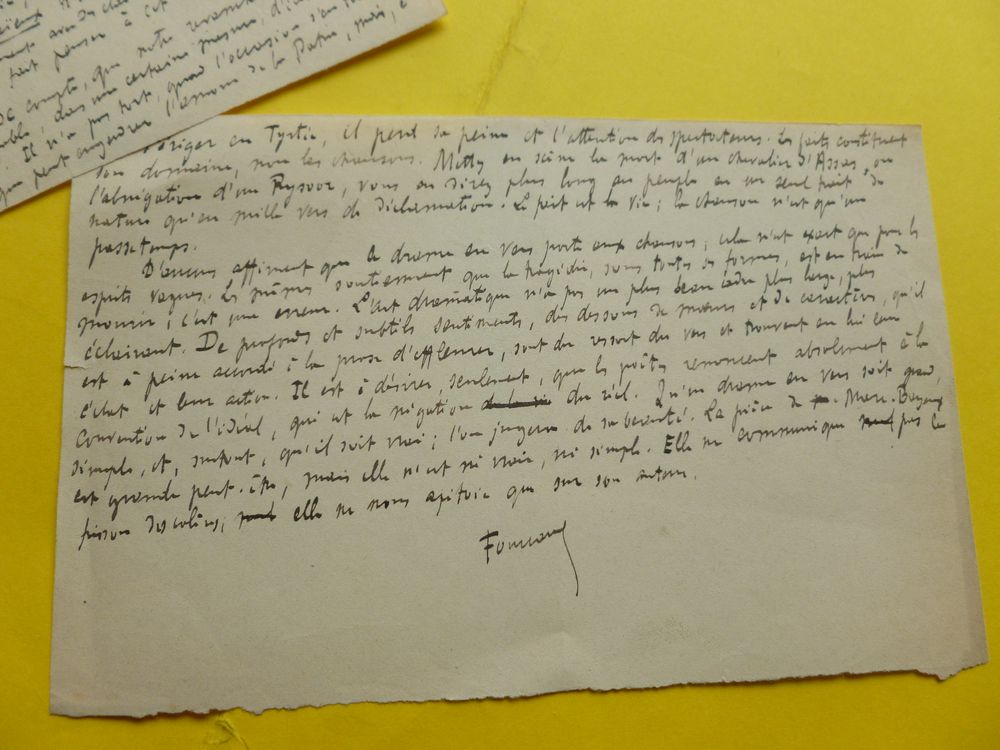 fait penser à cet
compte, que notre
dans une certaine mesure, d'
Il n'a pas tort, quand l'occasion s'en
peut engendrer l'amour de la Patrie, mais, à
ériger en Tyrtée, il perd sa peine et l'attention des spectateurs. Les faits constituent
son domaine, non les chansons. Mettez en scène la mort d'un chevalier d'Assas, ou
l'abnégation d'un Rysoor, vous en direz plus long au peuple en un seul trait de
nature qu'en mille vers de déclamation. Le fait est la vie; la chanson n'est qu'un
passetemps.
D'aucuns affirment que le drame en vers porte aux chansons; cela n'est exact que pour les
esprits vagues. Les mêmes soutiennent que la tragédie, sous toutes ses formes, est en train de
mourir; c'est une erreur. L'art dramatique n'a pas un plus beau cadre plus large, plus
éclairant. De profonds et subtils sentiments, des dessous de mœurs et de caractères, qu'il
est à peine accordé à la prose d'effleurer, sont du ressort du vers et trouvent en lui leur
éclat et leur action. Il est à désirer, seulement, que les poètes renoncent absolument à la
convention de l'idéal, qui est la négation de la vie du réel. Qu'un drame en vers soit grand,
simple, et, surtout, qu'il soit vrai; l'on jugera de sa beauté. La pièce de Marc. Bayeux
est grande peut-être, mais elle n'est ni vraie, ni simple. Elle ne communique pas le
frisson des colères; elle ne nous apitoie que sur son auteur.